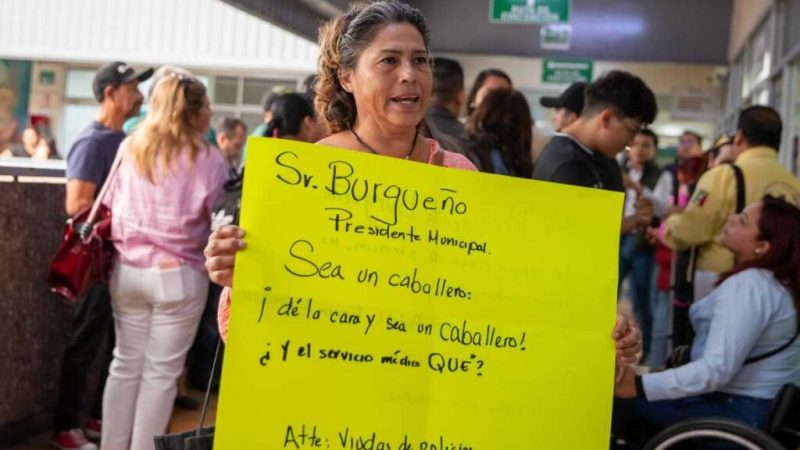 Sr. Burgueño
Presidente Municipal.
Sea un caballero:
¡dé la cara y sea un caballero!
¿Y el servicio médico QUE"?
Atte: Viudas de policías